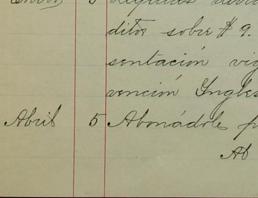 Enero 5
ditos sobre $ 9.
sentación
vención Ingles
Abril 5 Abonándole p
Ab